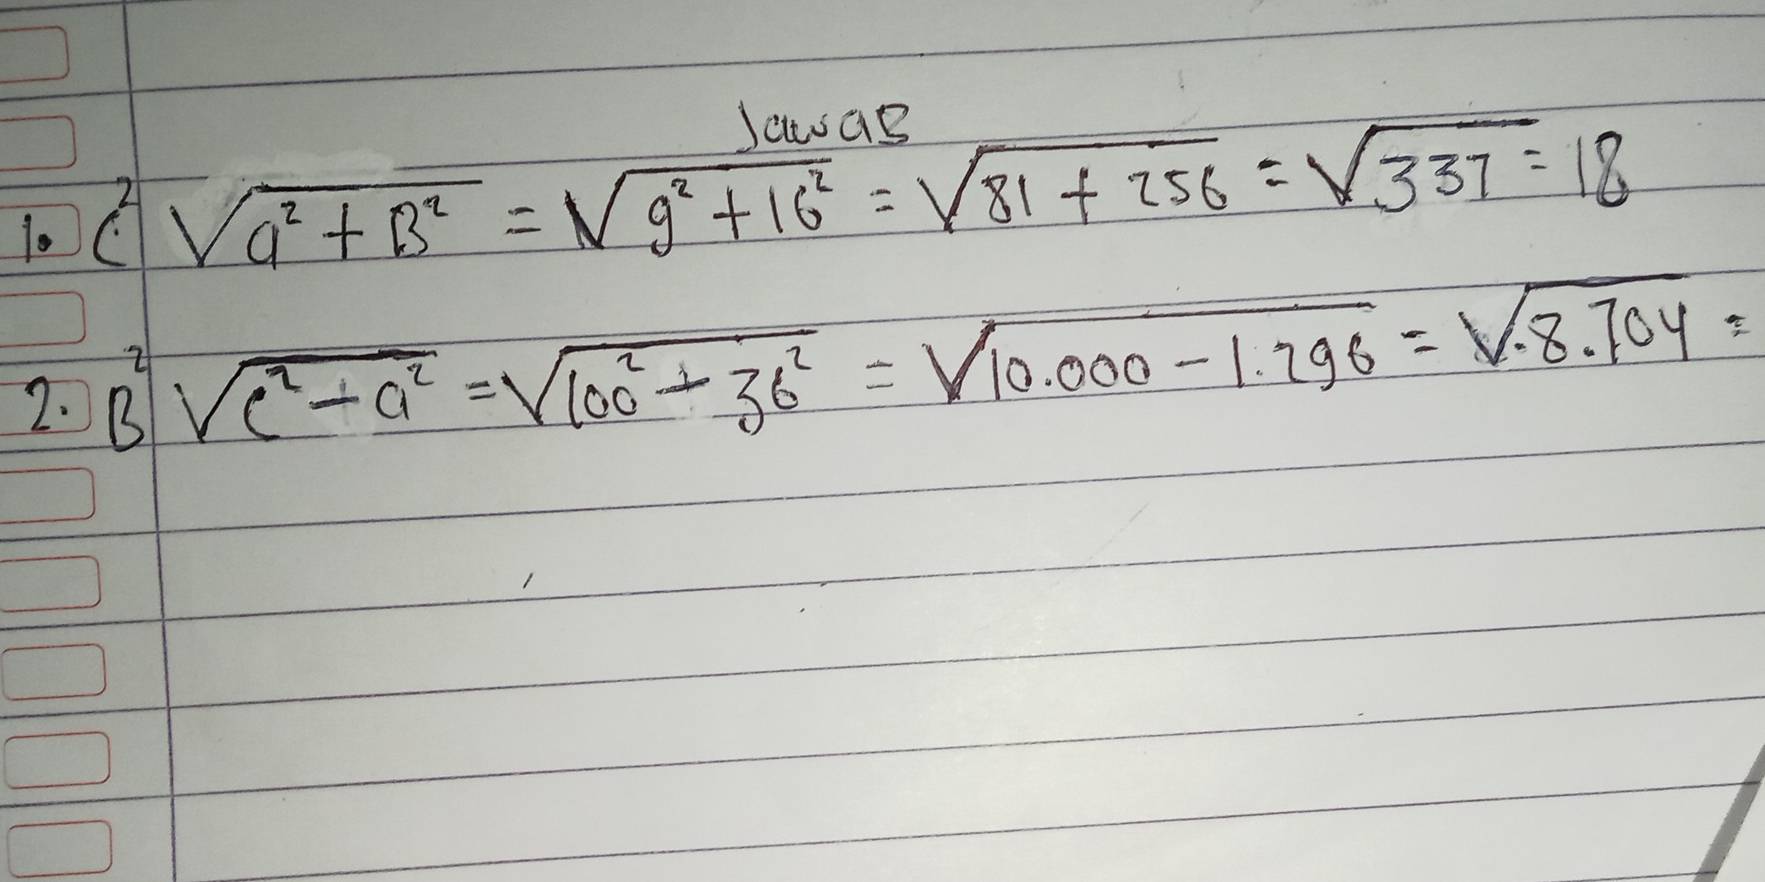 Jawab
1. C² √a² + B² = √9² + 16² = √81 + 256 = √337 = 18
2. B² √c² - a² = √100² + 36² = √10.000 - 1.296 = √.8.704 =